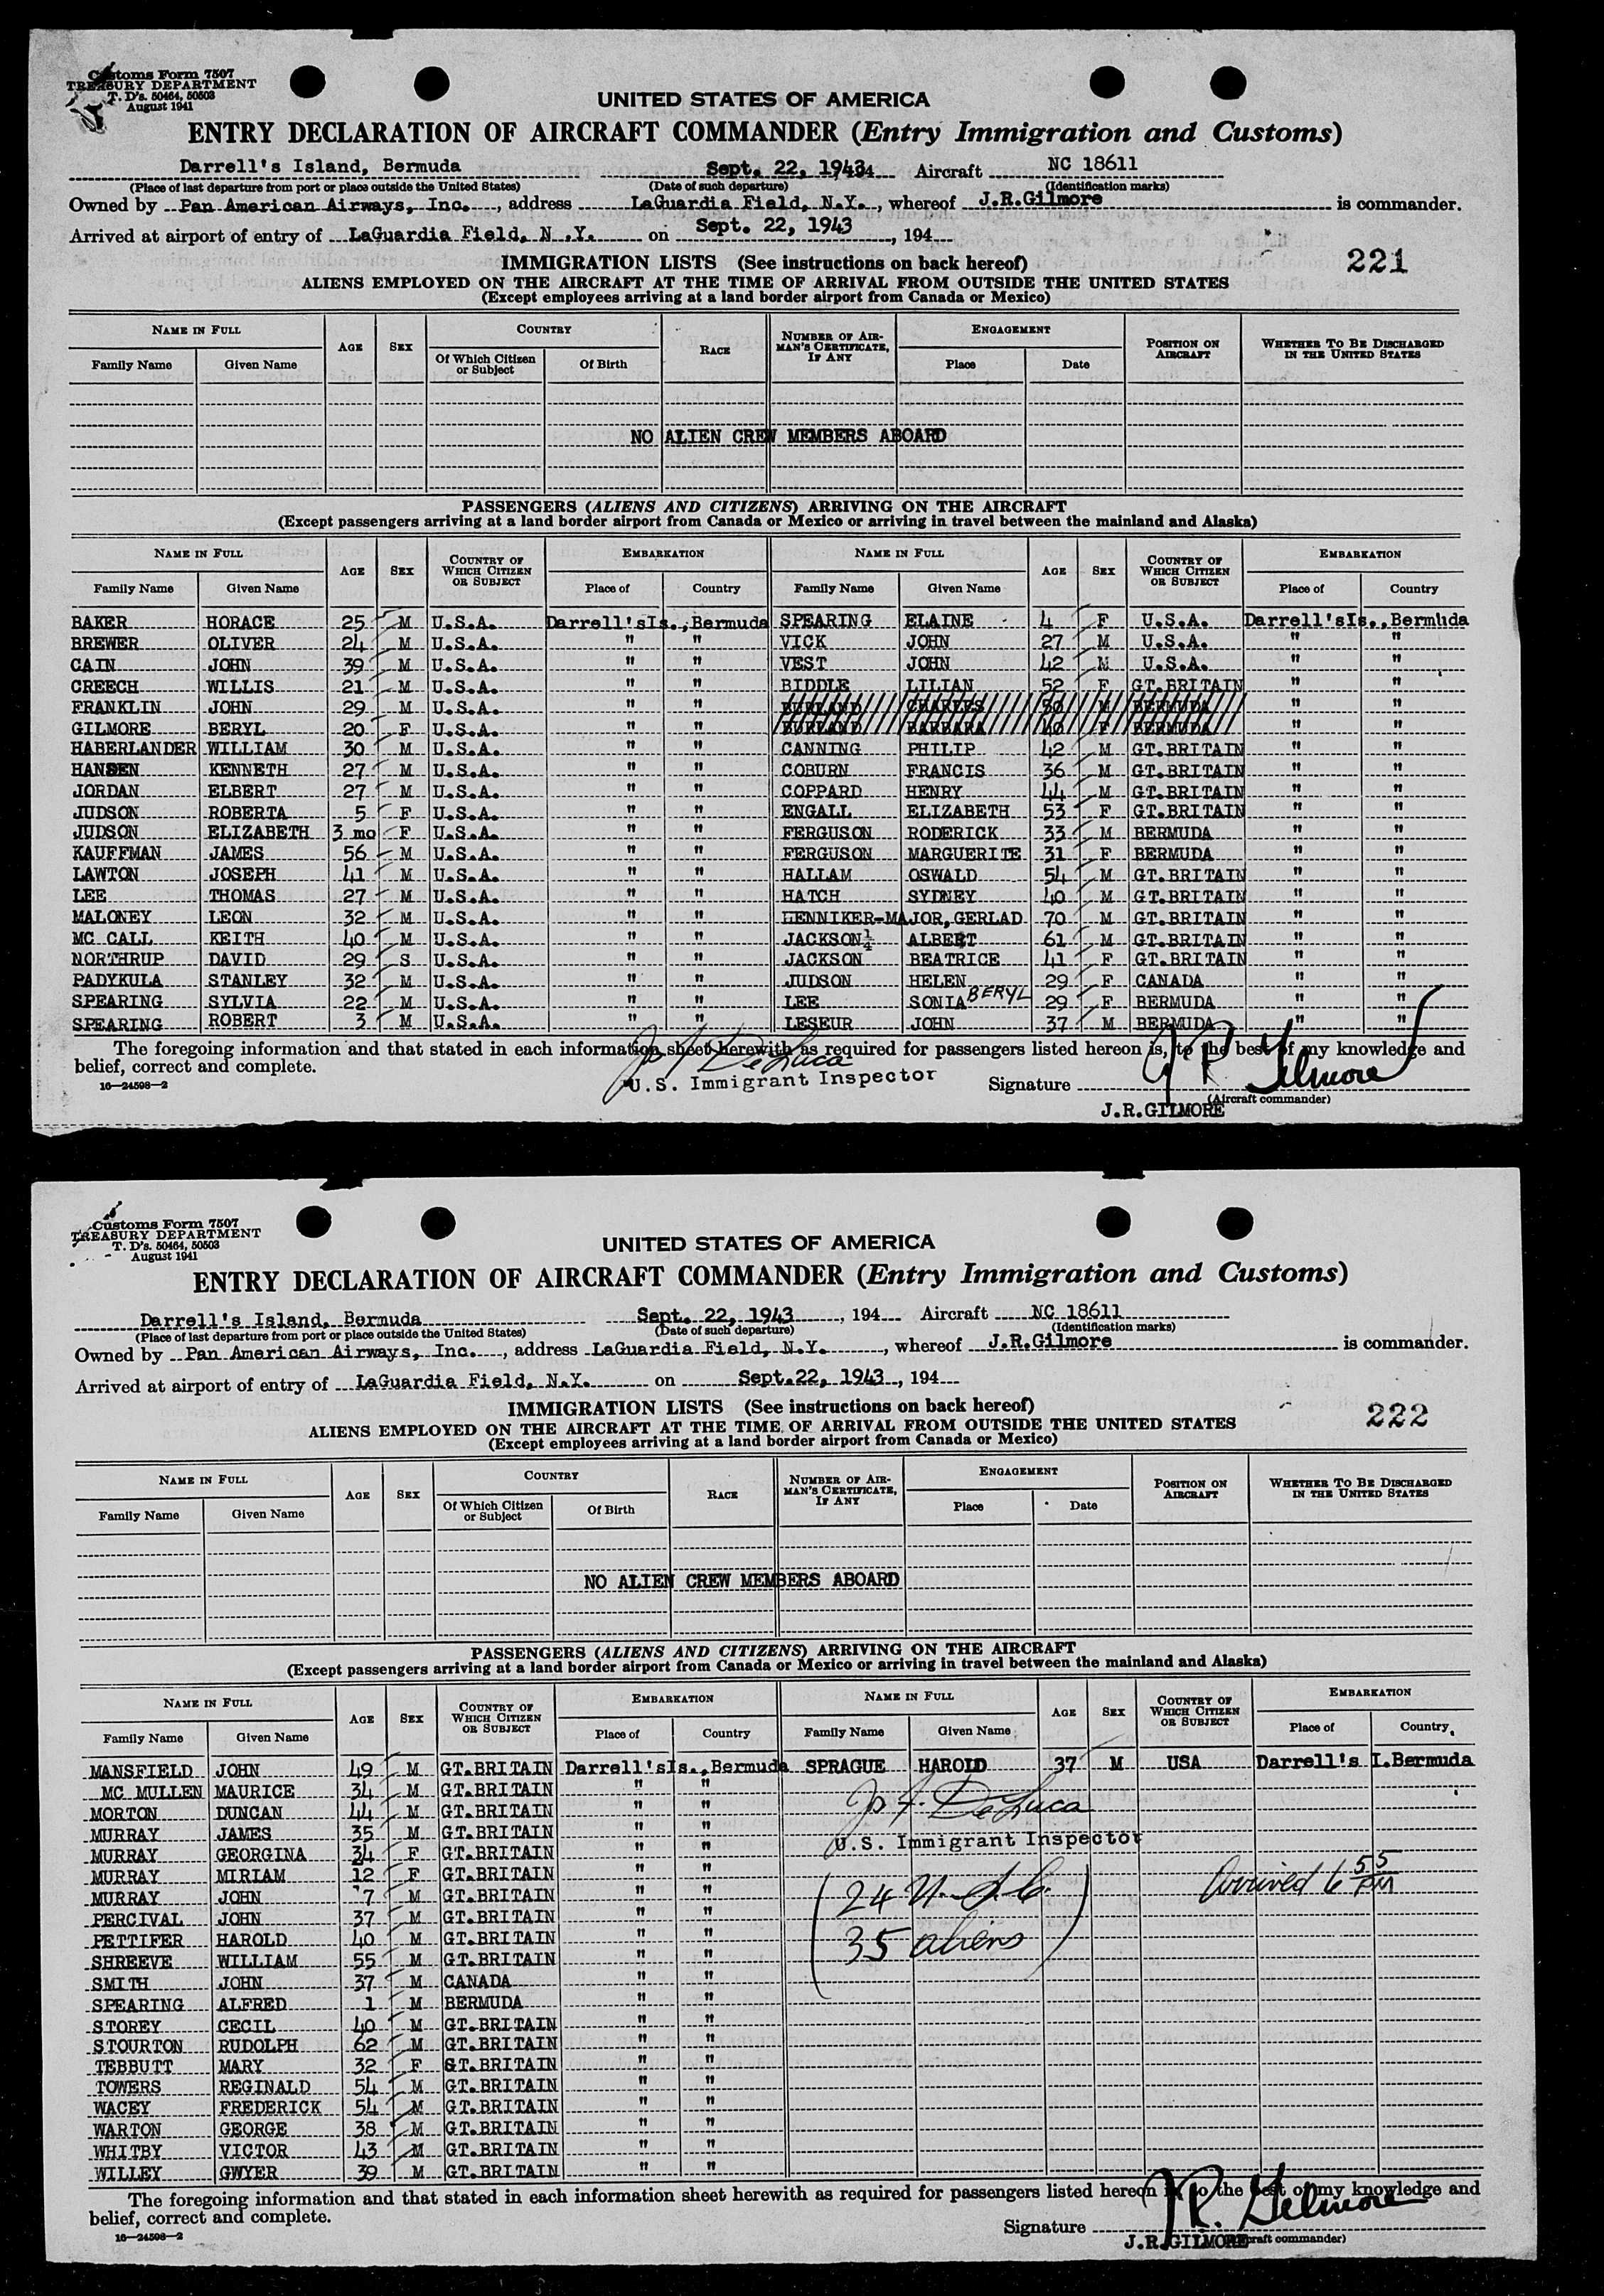 Customs Form 7507
TREASURY DEPARTMENT
T. D's. 50464, 50503
August 1941
UNITED STATES OF AMERICA
ENTRY DECLARATION OF AIRCRAFT COMMANDER (Entry Immigration and Customs)
Darrell's Island, Bermuda Sept. 22, 1943, 194 Aircraft NC 18611
(Place of last departure from port or place outside the United States) (Date of such departure) (Identification marks)
Owned by Pan American Airways, Inc., address LaGuardia Field, N.Y., whereof J.R.Gilmore is commander.
Arrived at airport of entry of LaGuardia Field, N.Y. on Sept. 22, 1943, 194
221
IMMIGRATION LISTS (See instructions on back hereof)
ALIENS EMPLOYED ON THE AIRCRAFT AT THE TIME OF ARRIVAL FROM OUTSIDE THE UNITED STATES
(Except employees arriving at a land border airport from Canada or Mexico)
NAME IN FULL AGE SEX COUNTRY RACE NUMBER OF AIRMAN'S CERTIFICATE, IF ANY ENGAGEMENT POSITION ON AIRCRAFT WHETHER TO BE DISCHARGED IN THE UNITED STATES
Family Name Given Name Of Which Citizen or Subject Of Birth Place Date
NO ALIEN CREW MEMBERS ABOARD
PASSENGERS (ALIENS AND CITIZENS) ARRIVING ON THE AIRCRAFT
(Except passengers arriving at a land border airport from Canada or Mexico or arriving in travel between the mainland and Alaska)
NAME IN FULL AGE SEX COUNTRY OF WHICH CITIZEN OR SUBJECT EMBARKATION NAME IN FULL AGE SEX COUNTRY OF WHICH CITIZEN OR SUBJECT EMBARKATION
Family Name Given Name Place of Country Family Name Given Name Place of Country
BAKER HORACE 25 M U.S.A. Darrell'sIs., Bermuda SPEARING ELAINE 4 F U.S.A. Darrell'sIs., Bermuda
BREWER OLIVER 24 M U.S.A. " " VICK JOHN 27 M U.S.A. " "
CAIN JOHN 39 M U.S.A. " " VEST JOHN 42 M U.S.A. " "
CREECH WILLIS 21 M U.S.A. " " BIDDLE LILIAN 52 F GT.BRITAIN " "
FRANKLIN JOHN 29 M U.S.A. " " BURLAND CHARLES 50 M BERMUDA " "
GILMORE BERYL 20 F U.S.A. " " BURLAND BARBARA 40 F BERMUDA " "
HABERLANDER WILLIAM 30 M U.S.A. " " CANNING PHILIP 42 M GT.BRITAIN " "
HANSEN KENNETH 27 M U.S.A. " " COBURN FRANCIS 36 M GT.BRITAIN " "
JORDAN ELBERT 27 M U.S.A. " " COPPARD HENRY 44 M GT.BRITAIN " "
JUDSON ROBERTA 5 F U.S.A. " " ENGALL ELIZABETH 53 F GT.BRITAIN " "
JUDSON ELIZABETH 3 mo F U.S.A. " " FERGUSON RODERICK 33 M BERMUDA " "
KAUFFMAN JAMES 56 M U.S.A. " " FERGUSON MARGUERITE 31 F BERMUDA " "
LAWTON JOSEPH 41 M U.S.A. " " HALLAM OSWALD 54 M GT.BRITAIN " "
LEE THOMAS 27 M U.S.A. " " HATCH SYDNEY 40 M GT.BRITAIN " "
MALONEY LEON 32 M U.S.A. " " HENNIKER-MAJOR, GERLAD 70 M GT.BRITAIN " "
MC CALL KEITH 40 M U.S.A. " " JACKSON¼ ALBERT 61 M GT.BRITAIN " "
NORTHRUP DAVID 29 S U.S.A. " " JACKSON BEATRICE 41 F GT.BRITAIN " "
PADYKULA STANLEY 32 M U.S.A. " " JUDSON HELEN 29 F CANADA " "
SPEARING SYLVIA 22 M U.S.A. " " LEE SONIA BERYL 29 F BERMUDA " "
SPEARING ROBERT 3 M U.S.A. " " LESEUR JOHN 37 M BERMUDA " "
The foregoing information and that stated in each information sheet herewith as required for passengers listed hereon is, to the best of my knowledge and
belief, correct and complete.
16—24598-2
Jo A. DeLuca
U.S. Immigrant Inspector
Signature J R Gilmore
(Aircraft commander)
J.R.GILMORE
Customs Form 7507
TREASURY DEPARTMENT
T. D's. 50464, 50503
August 1941
UNITED STATES OF AMERICA
ENTRY DECLARATION OF AIRCRAFT COMMANDER (Entry Immigration and Customs)
Darrell's Island, Bermuda Sept. 22, 1943, 194 Aircraft NC 18611
(Place of last departure from port or place outside the United States) (Date of such departure) (Identification marks)
Owned by Pan American Airways, Inc., address LaGuardia Field, N.Y., whereof J.R.Gilmore is commander.
Arrived at airport of entry of LaGuardia Field, N.Y. on Sept.22, 1943, 194
222
IMMIGRATION LISTS (See instructions on back hereof)
ALIENS EMPLOYED ON THE AIRCRAFT AT THE TIME OF ARRIVAL FROM OUTSIDE THE UNITED STATES
(Except employees arriving at a land border airport from Canada or Mexico)
NAME IN FULL AGE SEX COUNTRY RACE NUMBER OF AIRMAN'S CERTIFICATE, IF ANY ENGAGEMENT POSITION ON AIRCRAFT WHETHER TO BE DISCHARGED IN THE UNITED STATES
Family Name Given Name Of Which Citizen or Subject Of Birth Place Date
NO ALIEN CREW MEMBERS ABOARD
PASSENGERS (ALIENS AND CITIZENS) ARRIVING ON THE AIRCRAFT
(Except passengers arriving at a land border airport from Canada or Mexico or arriving in travel between the mainland and Alaska)
NAME IN FULL AGE SEX COUNTRY OF WHICH CITIZEN OR SUBJECT EMBARKATION NAME IN FULL AGE SEX COUNTRY OF WHICH CITIZEN OR SUBJECT EMBARKATION
Family Name Given Name Place of Country Family Name Given Name Place of Country
MANSFIELD JOHN 49 M GT.BRITAIN Darrell'sIs., Bermuda SPRAGUE HAROLD 37 M USA Darrell's I.Bermuda
MC MULLEN MAURICE 34 M GT.BRITAIN " "
MORTON DUNCAN 44 M GT.BRITAIN " "
Jo A. DeLuca
MURRAY JAMES 35 M GT.BRITAIN " "
U.S. Immigrant Inspector
MURRAY GEORGINA 34 F GT.BRITAIN " "
MURRAY MIRIAM 12 F GT.BRITAIN " "
Arrived 6 55 PM
MURRAY JOHN 7 M GT.BRITAIN " "
24 U.S.C.
PERCIVAL JOHN 37 M GT.BRITAIN " "
PETTIFER HAROLD 40 M GT.BRITAIN " "
35 aliens
SHREEVE WILLIAM 55 M GT.BRITAIN " "
SMITH JOHN 37 M CANADA " "
SPEARING ALFRED 1 M BERMUDA " "
STOREY CECIL 40 M GT.BRITAIN " "
STOURTON RUDOLPH 62 M GT.BRITAIN " "
TEBBUTT MARY 32 F GT.BRITAIN " "
TOWERS REGINALD 54 M GT.BRITAIN " "
WACEY FREDERICK 54 M GT.BRITAIN " "
WARTON GEORGE 38 M GT.BRITAIN " "
WHITBY VICTOR 43 M GT.BRITAIN " "
WILLEY GWYER 39 M GT.BRITAIN " "
The foregoing information and that stated in each information sheet herewith as required for passengers listed hereon is, to the best of my knowledge and
belief, correct and complete.
16—24598-2
Signature J.R. Gilmore
J.R.GILMORE (Aircraft commander)